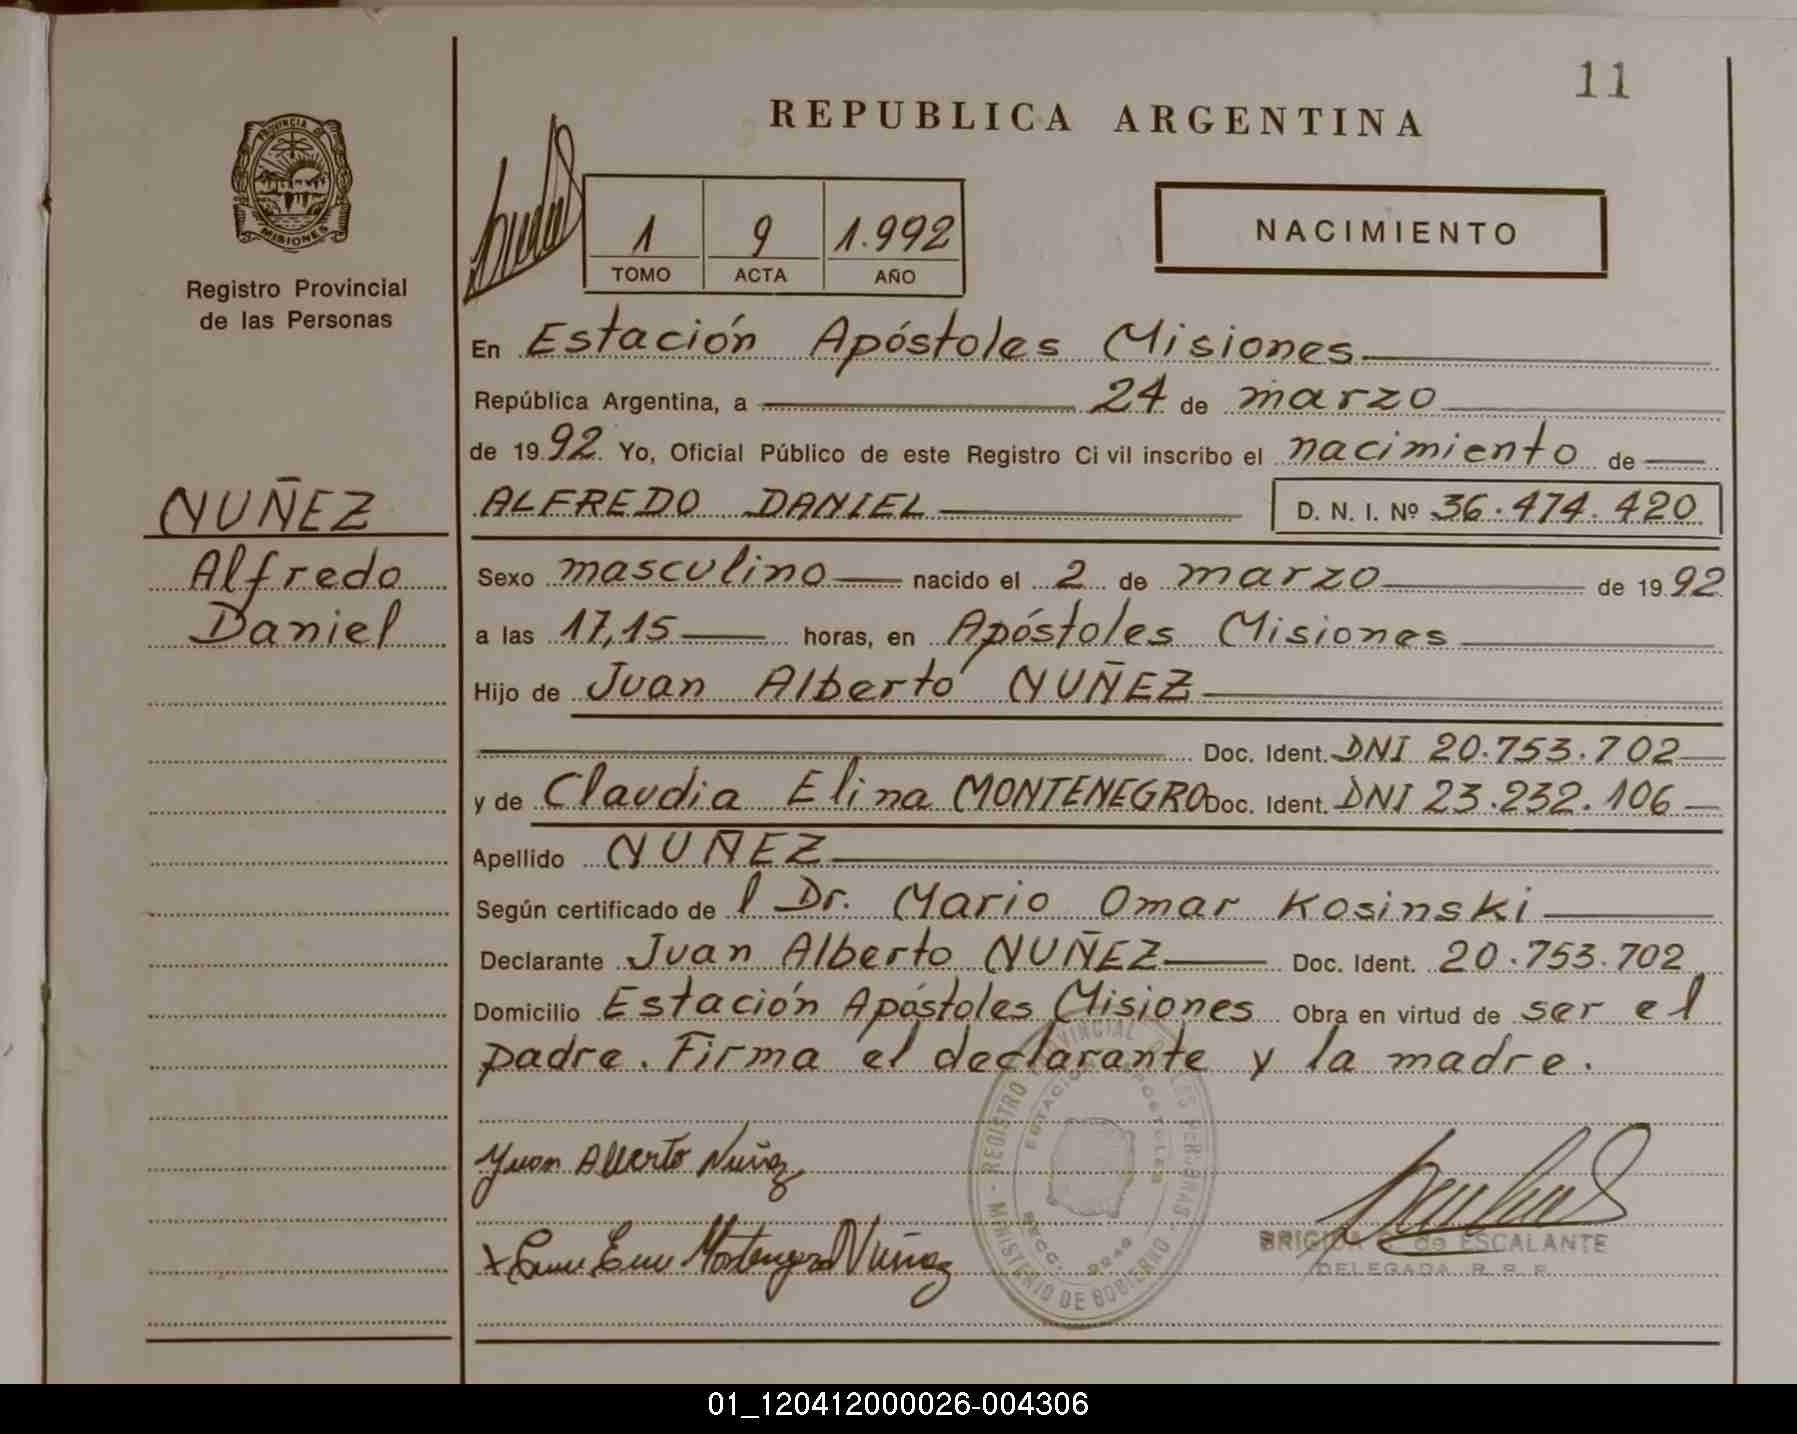 11
REPUBLICA ARGENTINA
PROVINCIA DE
MISIONES
Registro Provincial
de las Personas
1 9 1.992
TOMO ACTA AÑO
NACIMIENTO
En Estación Apóstoles Misiones
República Argentina, a 24 de marzo
de 1992. Yo, Oficial Público de este Registro Civil inscribo el nacimiento de
NUÑEZ
Alfredo
Daniel
ALFREDO DANIEL D. N. I. Nº 36.474.420
Sexo masculino nacido el 2 de marzo de 1992
a las 17,15 horas, en Apóstoles Misiones
Hijo de Juan Alberto NUÑEZ
Doc. Ident. DNI 20.753.702
y de Claudia Elina MONTENEGRO Doc. Ident. DNI 23.232.106
Apellido NUÑEZ
Según certificado del Dr. Mario Omar Kosinski
Declarante Juan Alberto NUÑEZ Doc. Ident. 20.753.702
Domicilio Estación Apóstoles Misiones Obra en virtud de ser el
padre. Firma el declarante y la madre.
REGISTRO PROVINCIAL DE LAS PERSONAS - MINISTERIO DE GOBIERNO -
ESTACION APOSTOLES
SECC.
Juan Alberto Nuñez
Montenegro Nuñez
BRIGIDA de ESCALANTE
DELEGADA R. P. P.
01_120412000026-004306